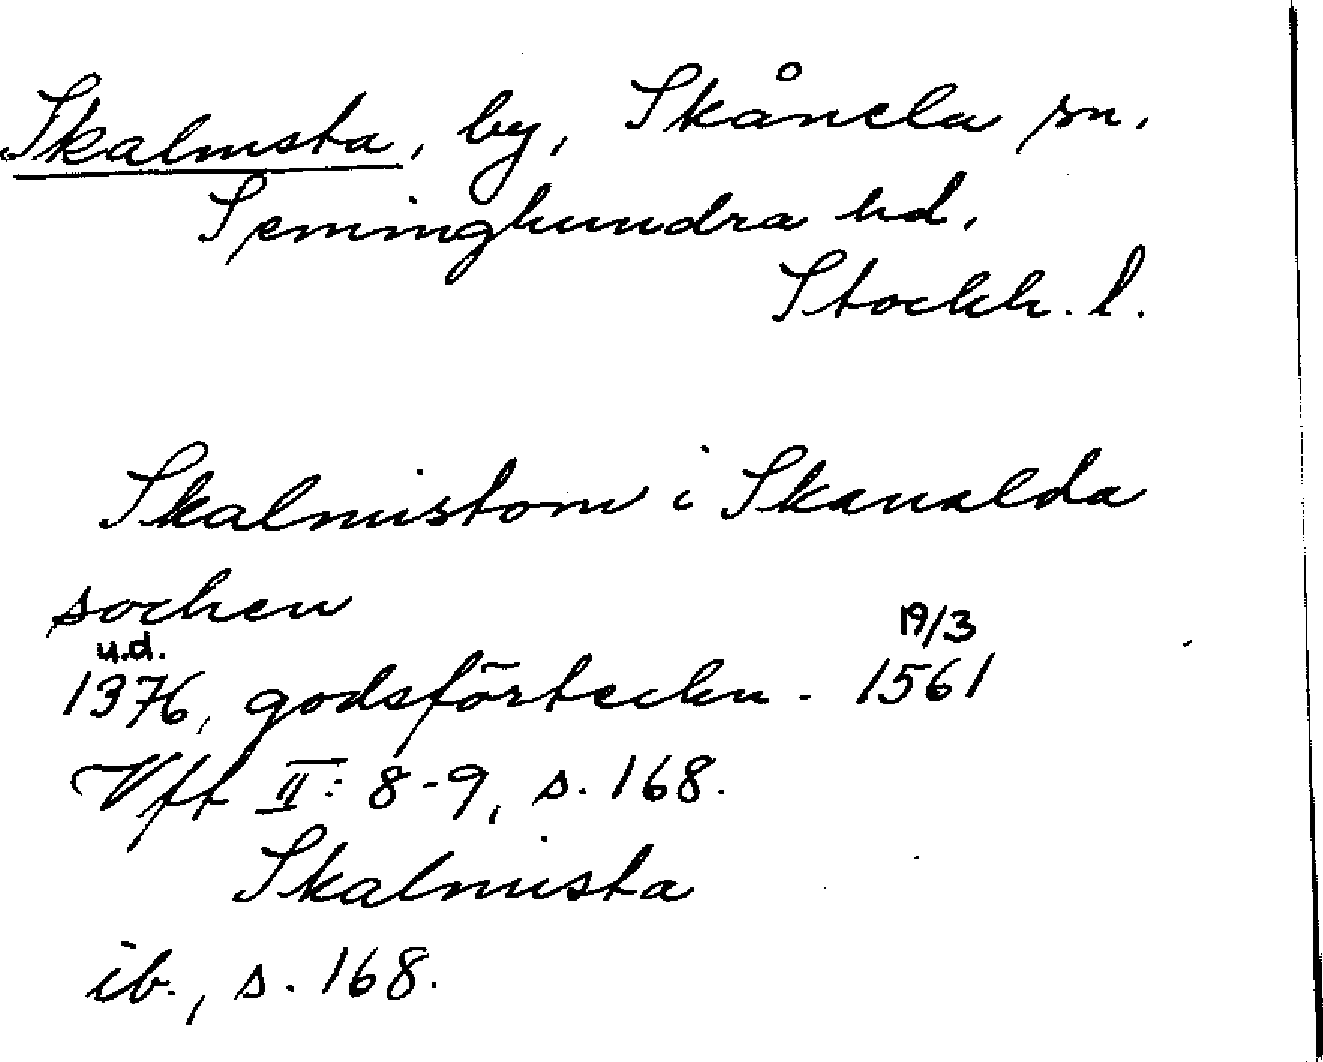 Skalmsta, by, Skånela sn.
Seminghundra hd.
Stockh. l.
Skalmistom i Skanalda
sochen
u.d. 19/3
1376, godsförteckn. 1561
Vft II: 8-9, s. 168.
Skalmista
ib., s. 168.